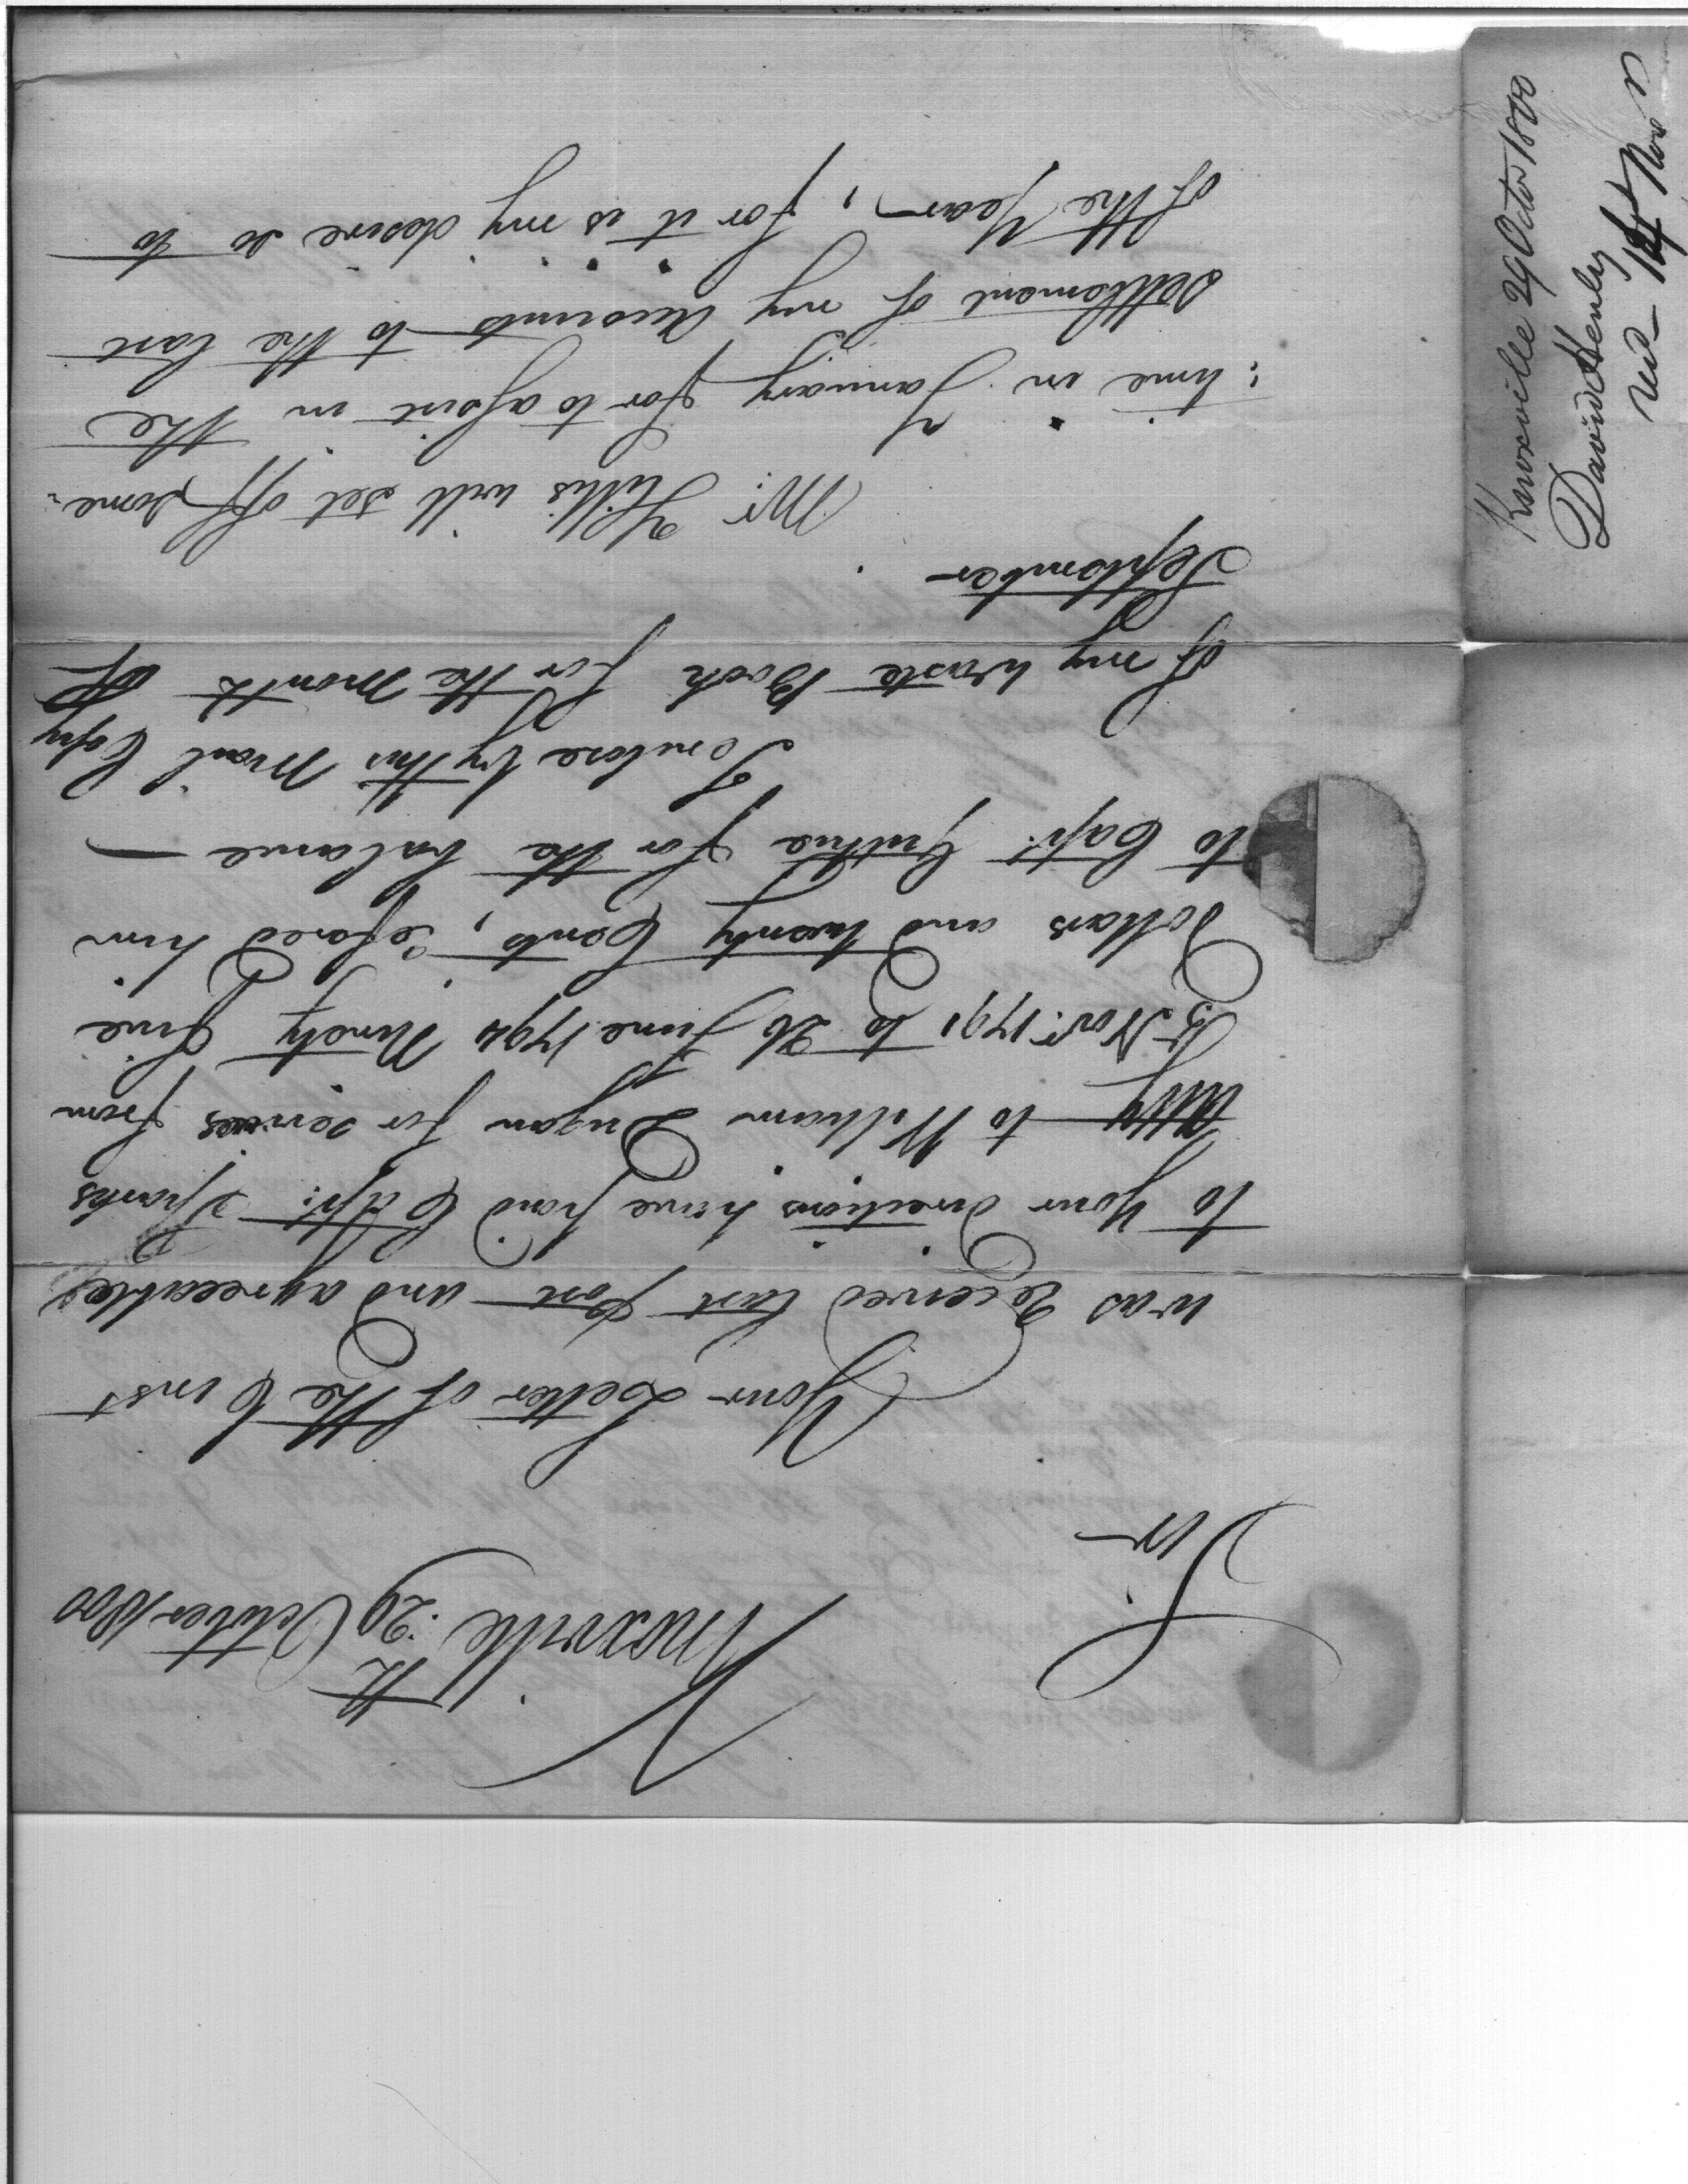 Knoxville 29th October 1800
Sir
Your Letter of the 6 inst
was Received last post and agreeable
to Your directions have paid Capt: Sparks
Atty to William Dugan for services from
5 Nov: 1791 to 26 June 1794 Ninety five
Dollars and twenty Cents, refered him
to Capt: Guthrie for the balance —
Inclose by this Mail Copy
of my Waste Book for the Month of
September
Mr: Hillis will set off some:
:time in January for to assist in the
settlement of my Accounts to the last
of the Year, for it is my desire so to
Knoxville 29 Octor 1800
David Henley
Recd 14 Nov